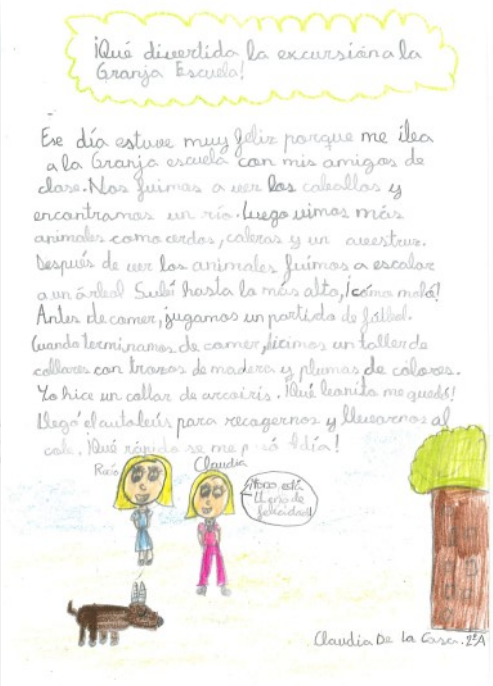 ¡Qué divertida la excursión a la
Granja Escuela!
Ese día estuve muy feliz porque me iba
a la Granja escuela con mis amigos de
clase. Nos fuimos a ver los caballos y
encontramos un río. Luego vimos más
animales como cerdos, cabras y un avestruz.
Después de ver los animales fuimos a escalar
a un árbol Subí hasta lo más alto, ¡cómo moló!
Antes de comer, jugamos un partido de fútbol.
Cuando terminamos de comer, hicimos un taller de
collares con trozos de madera y plumas de colores.
Yo hice un collar de arcoiris. ¡Qué bonito me quedó!
Llegó el autobús para recogernos y llevarnos al
cole. ¡Qué rápido se me pasó l día!
Rocío Claudia
está
lleno de
felicidad!
Claudia De la Casa. 2ºA